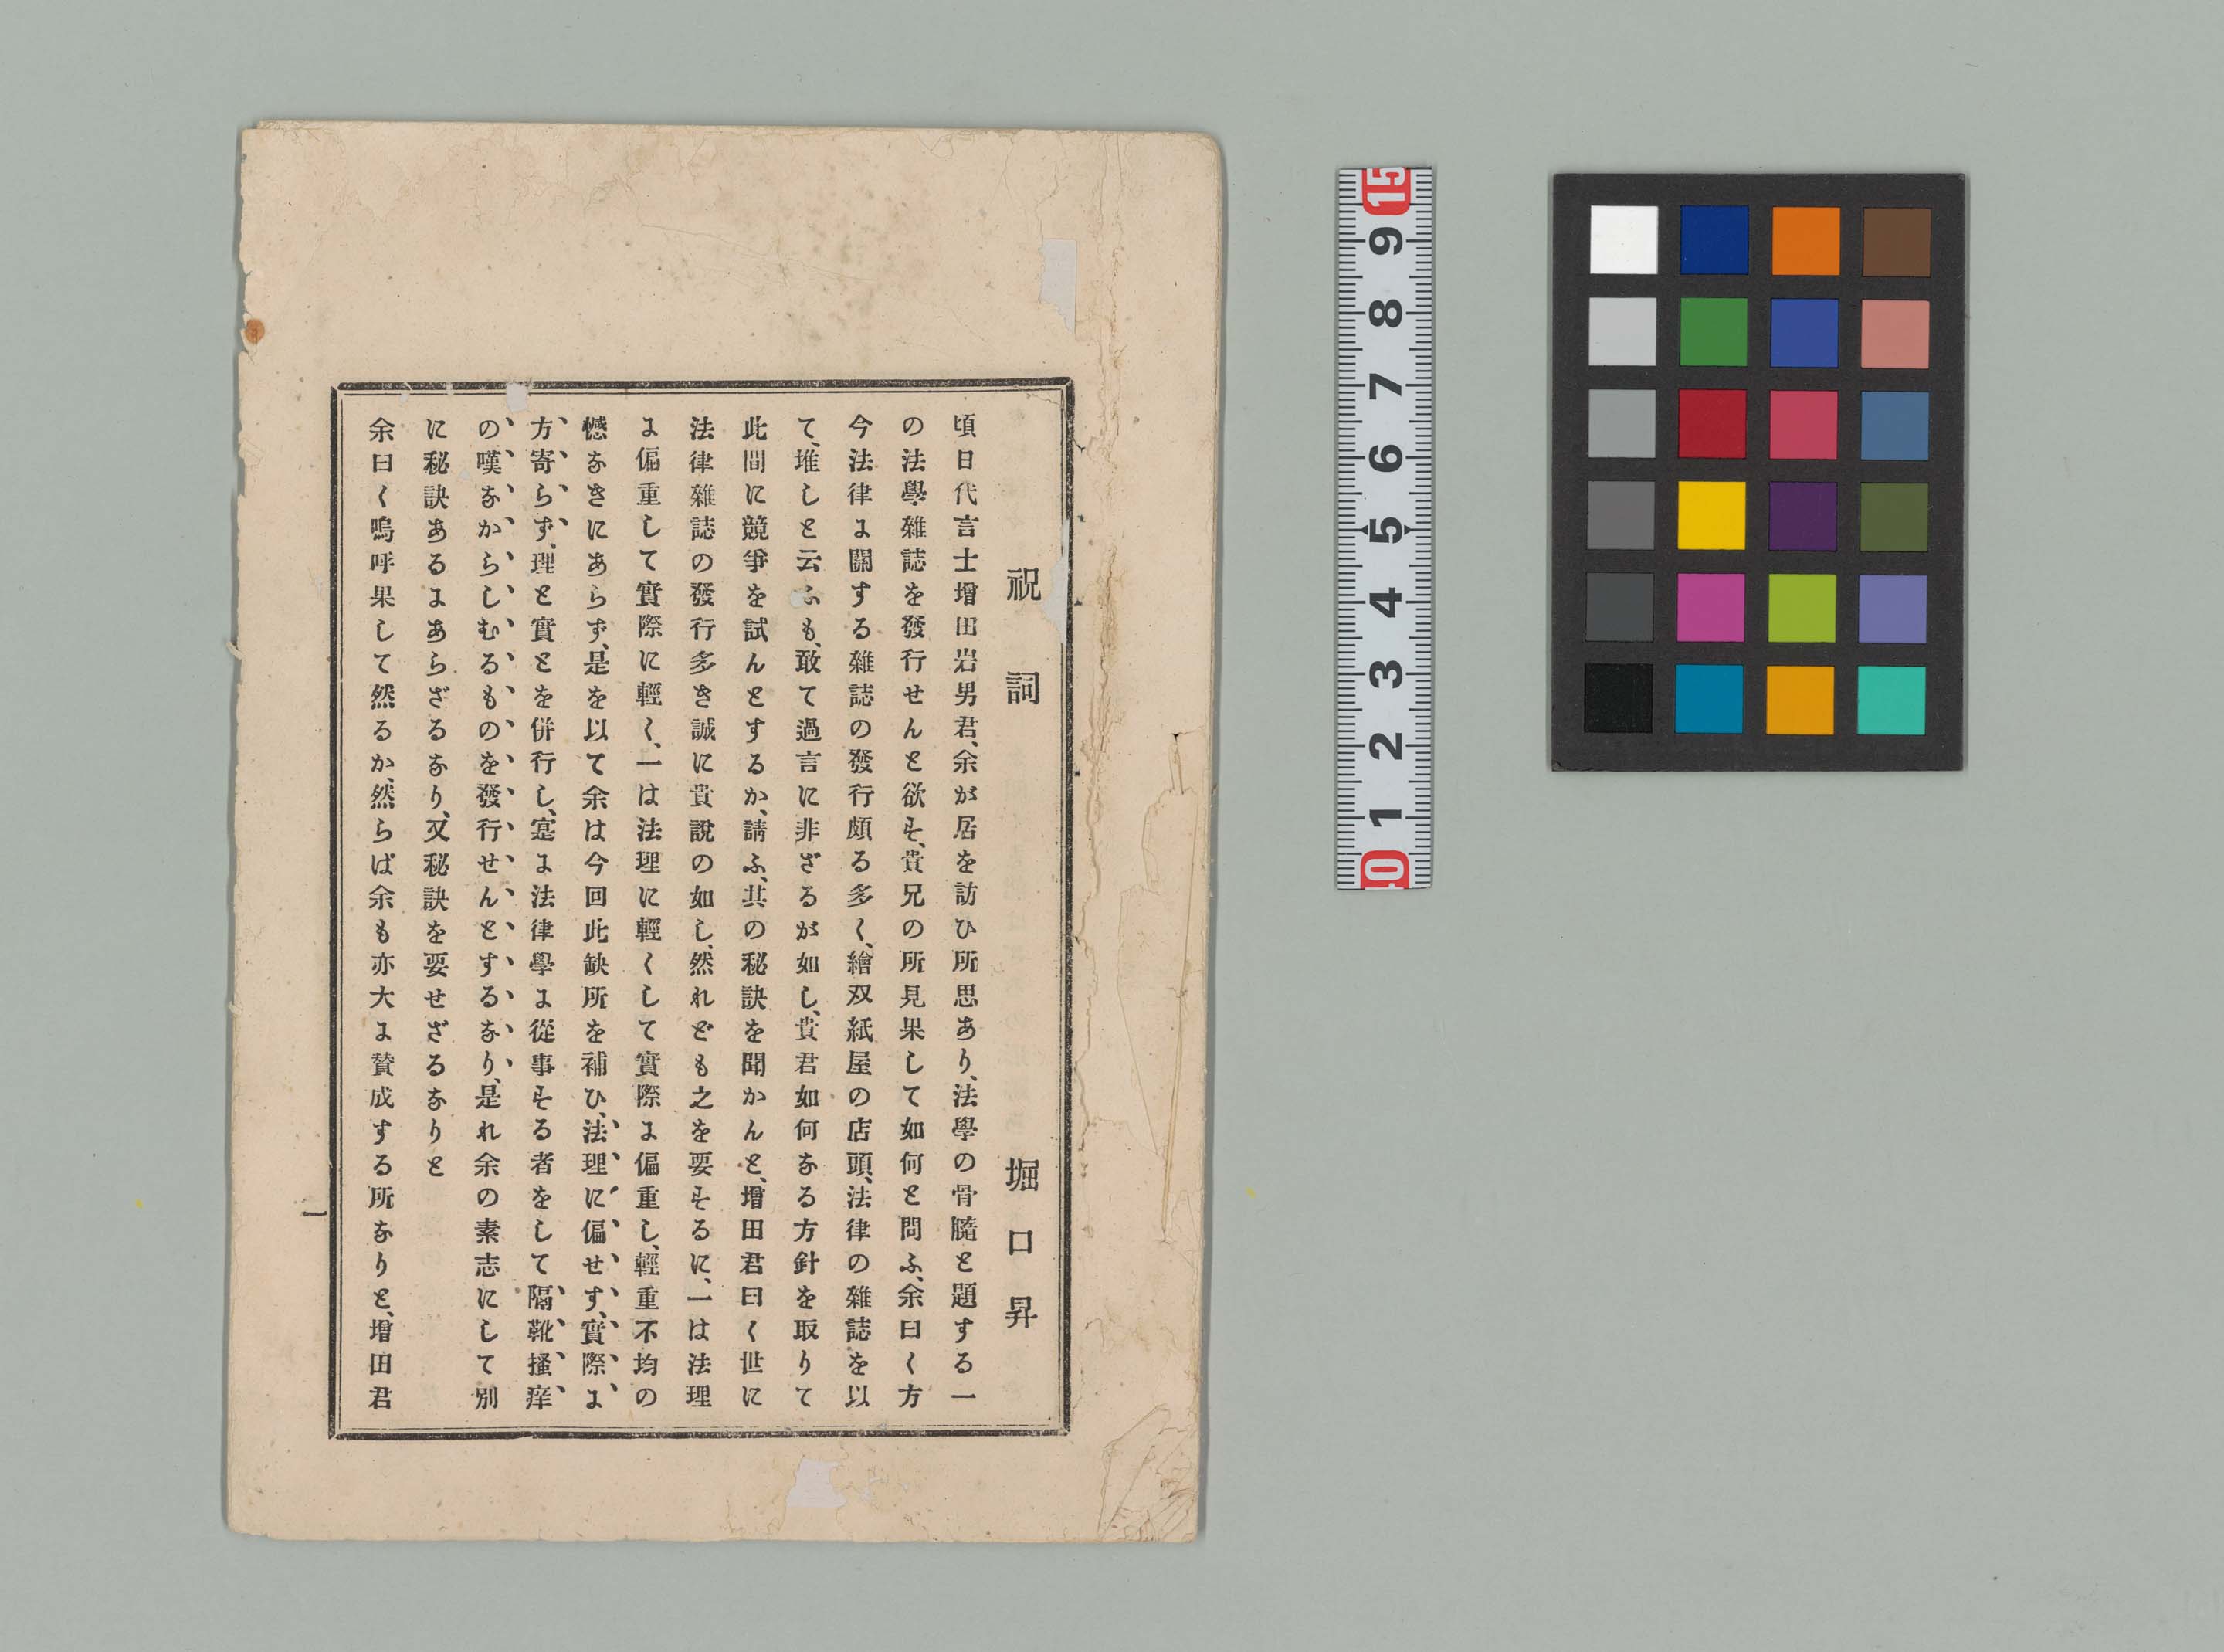 祝詞　堀口昇
頃日代言士增田岩男君、余が居を訪ひ所思あり、法學の骨髓と題する一
の法學雜誌を發行せんと欲す、貴兄の所見果して如何と問ふ、余曰く方
今法律に關する雜誌の發行頗る多く、繪双紙屋の店頭、法律の雜誌を以
て、堆しと云ふも、敢て過言に非ざるが如し、貴君如何なる方針を取りて
此間に競爭を試んとするか、請ふ、其の秘訣を聞かんと、增田君曰く世に
法律雜誌の發行多き誠に貴說の如し、然れども之を要するに、一は法理
に偏重して實際に輕く、一は法理に輕くして實際に偏重し、輕重不均の
憾なきにあらず、是を以て余は今回此缺所を補ひ、法理に偏せす、實際に
方寄らず、理と實とを併行し、寔に法律學に從事する者をして隔靴搔痒
の嘆なからしむるものを發行せんとするなり、是れ余の素志にして別
に秘訣あるにあらざるなり、又秘訣を要せざるなりと
余曰く嗚呼果して然るか、然らば余も亦大に賛成する所なりと、增田君
一
0 1 2 3 4 5 6 7 8 9 15